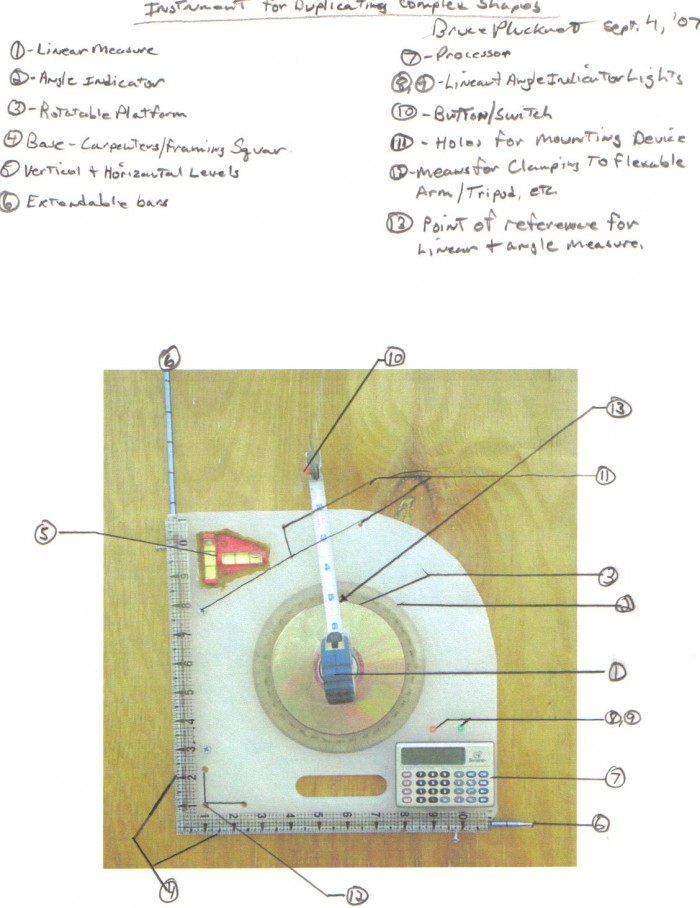 Instrument for Duplicating Complex Shapes
Bruce Pluckn Sept. 4, '07
① - Linear Measure
② - Angle Indicator
③ - Rotatable Platform
④ Base - Carpenters/Framing Squar
⑤ Vertical + Horizontal Levels
⑥ Extendable bars
⑦ - Processor
⑧,⑨ - Linear & Angle Indicator Lights
⑩ - Button/Switch
⑪ - Holes for Mounting Device
⑫ - Means for Clamping To Flexable
Arm/Tripod, etc.
⑬ Point of reference for
Linear + angle measure.
⑥
⑩
⑬
⑪
⑤
③
②
①
⑧,⑨
⑦
⑥
④
⑫
3
4
5
6
10
9
8
7
6
5
4
3
2
1
1 2 3 4 5 6 7 8 9 10